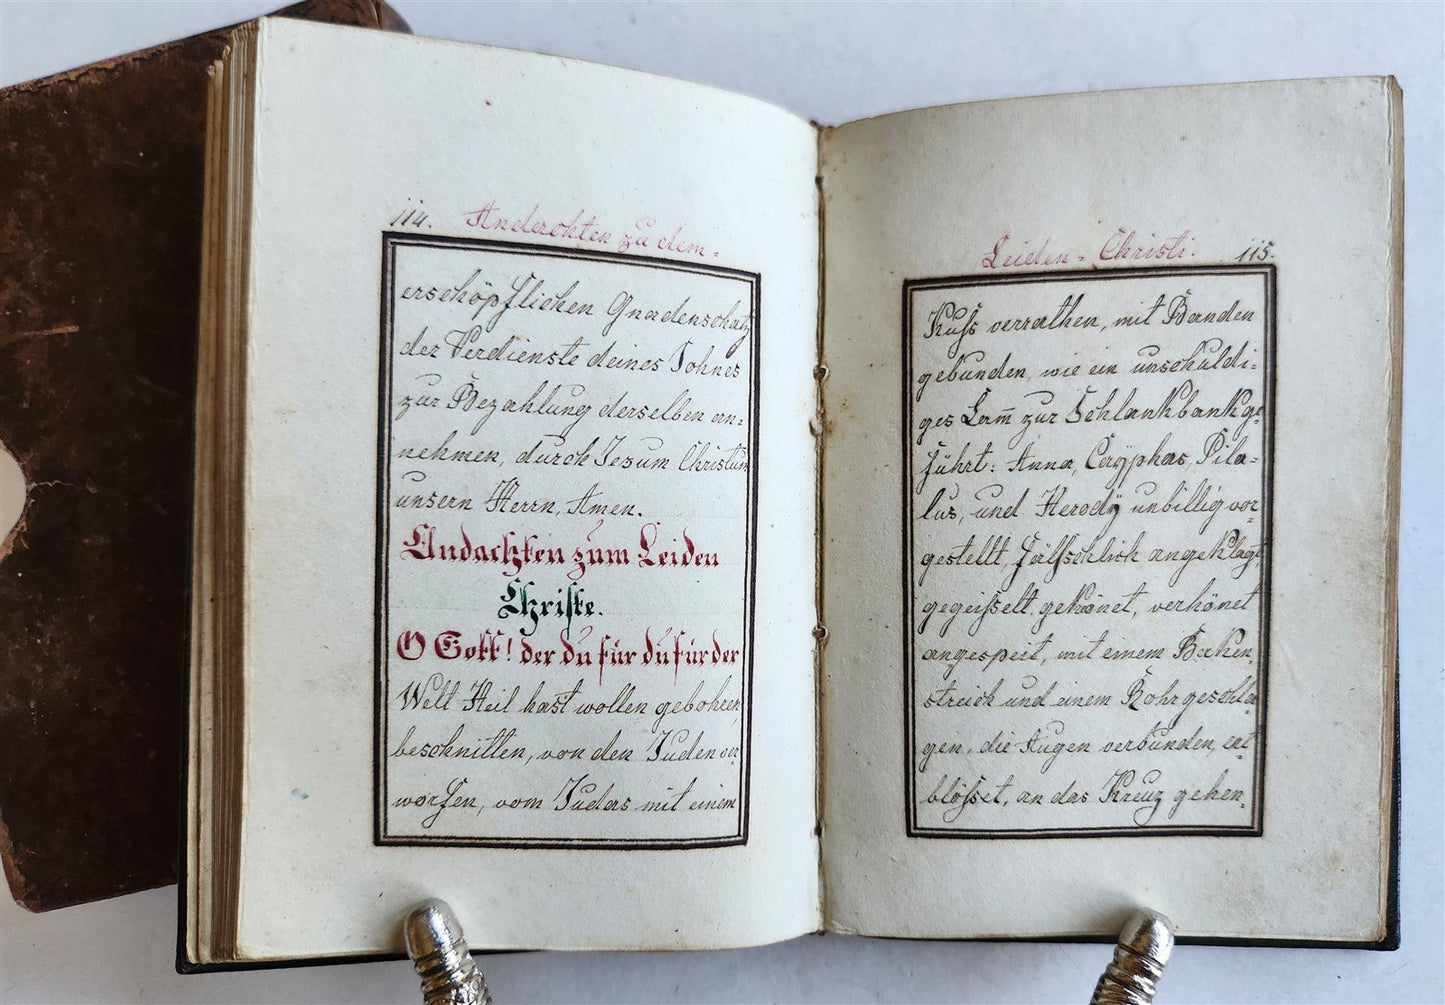 114. Anderchten zu dem =
erschöpflichen Gnadenschatz
der Verdienste deines Sohnes
zur Bezahlung derselben an=
nehmen, durch Jesum Christum
unsern Herrn, Amen.
Andachten zum Leiden
Christe.
O Gott! der du für du für der
Welt Heil hast wollen geboheen,
beschnitten, von den Juden ver
worfen, vom Judas mit einem
Leiden = Christi. 115.
Kuss verrathen, mit Banden
gebunden, wie ein unschuldi=
ges Lam̅ zur Schlankbank ge=
führt: Anna, Cayphas, Pila=
tus, und Herody unbillig vor=
gestellt, fälschlich angeklagt,
gegeisselt, gekönet, verhönet
angespeit, mit einem Baken=
streich und einem Rohr geschla=
gen, die Augen verbunden, ent
blösset, an das Kreuz gehen=